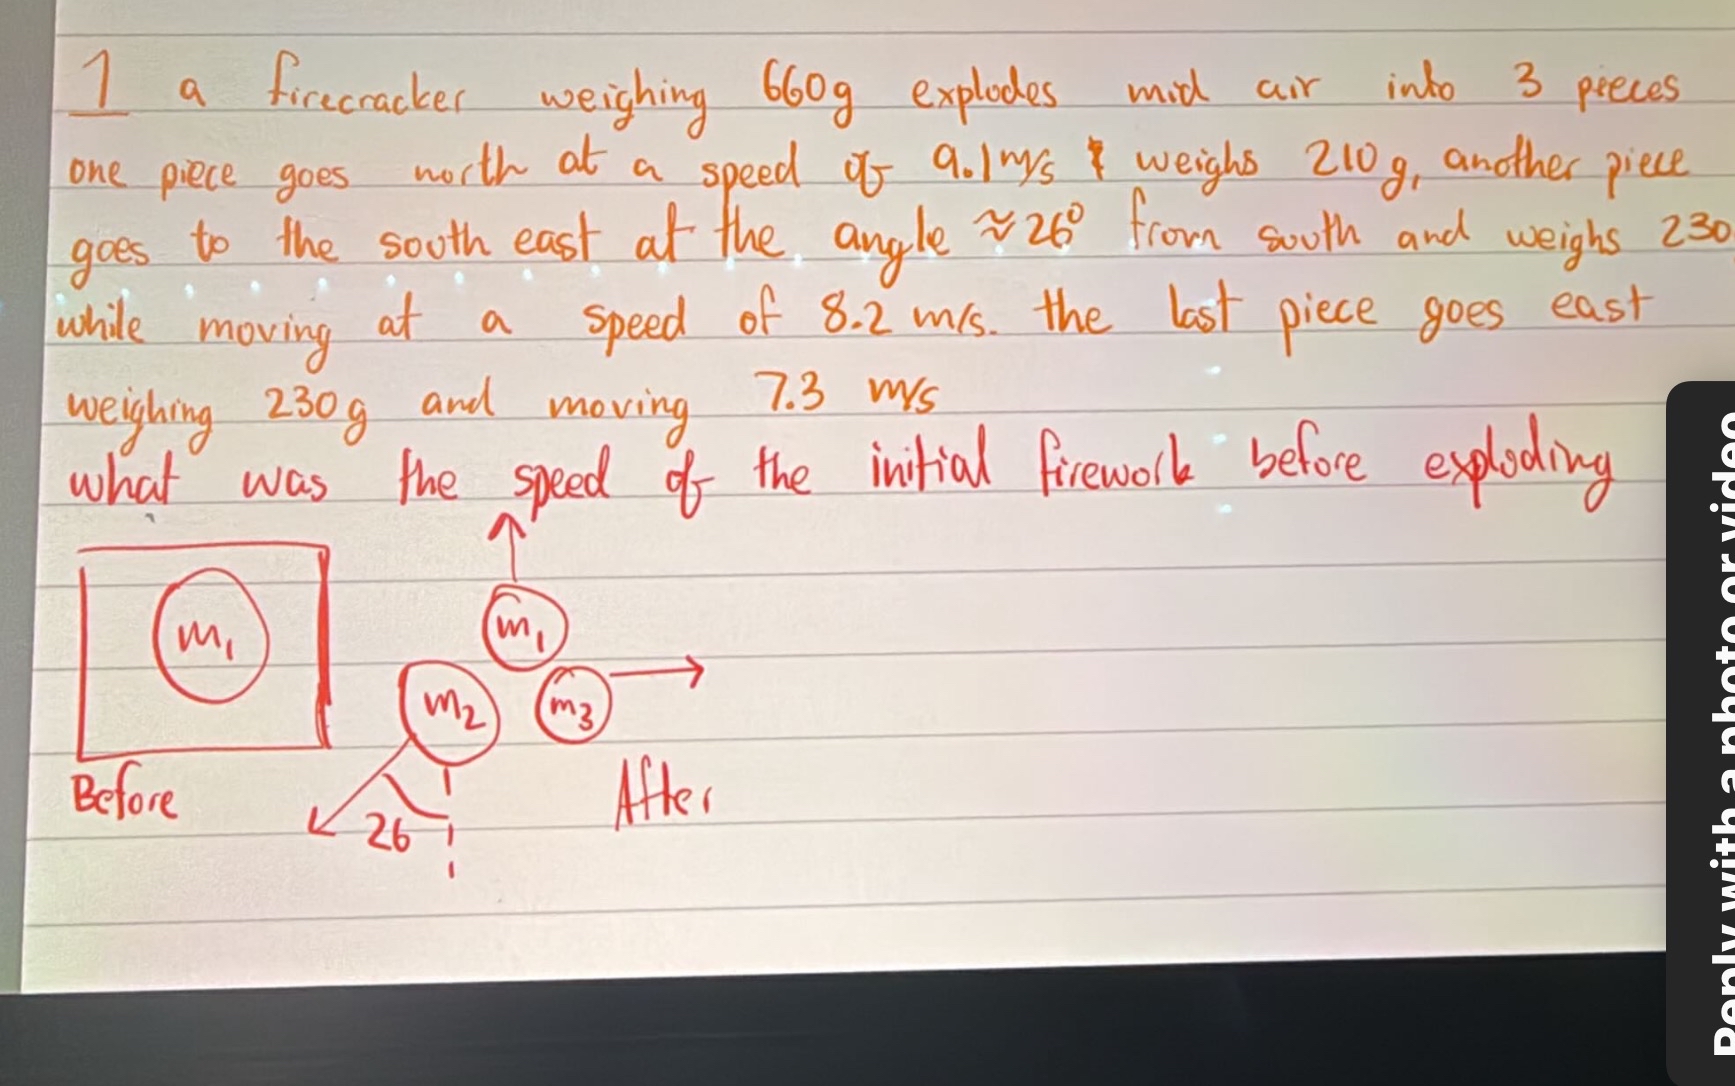 1 a firecracker weighing 660g explodes mid air into 3 pieces
one piece goes north at a speed of 9.1m/s & weighs 210g, another piece
goes to the south east at the angle ≈26° from south and weighs 230
while moving at a speed of 8.2 m/s. the last piece goes east
weighing 230g and moving 7.3 m/s
what was the speed of the initial firework before exploding
m1
m1
m2
m3
26
Before
After
Reply with a photo or video